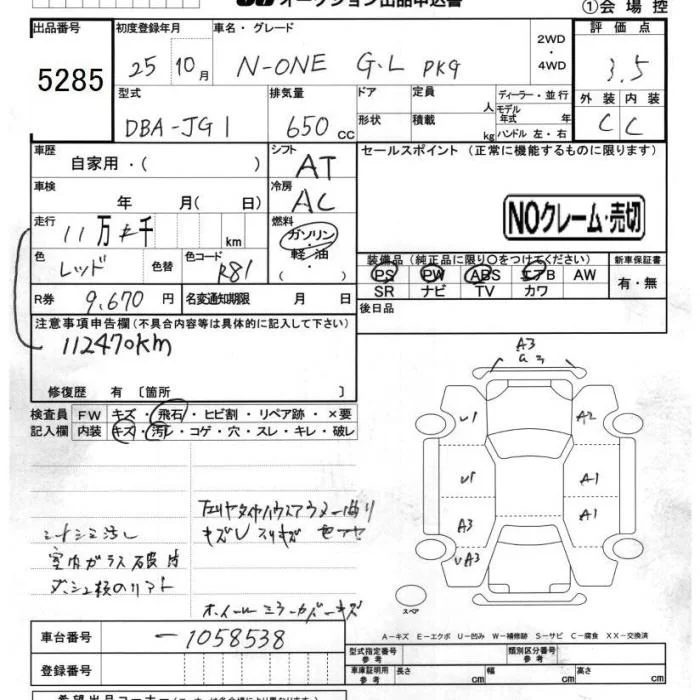 オークション出品申込書
①会場控
出品番号
初度登録年月
車名・グレード
2WD
・
4WD
評価点
5285
25 10月
N-ONE G・L PKG
3.5
型式
排気量
ドア
定員
人
ディーラー・並行
モデル年式 年
外装 内装
DBA-JG1
650 CC
形状
積載
kg
ハンドル 左・右
C C
車歴
自家用・( )
シフト
AT
セールスポイント (正常に機能するものに限ります)
車検
年 月( 日)
冷房
AC
NOクレーム・売切
走行
11万 千 km
燃料
ガソリン・
軽油・
( )
色
レッド
色替
色コード
R81
装備品(純正品に限り○をつけてください)
新車保証書
PS PW ABS エアB AW
有・無
SR ナビ TV カワ
R券
9,670 円
名変通期限 月 日
後日品
注意事項申告欄(不具合内容等は具体的に記入して下さい)
112470km
修復歴 有〔箇所 〕
検査員
記入欄
FW キズ・飛石・ヒビ割・リペア跡・×要
内装 キズ・汚レ・コゲ・穴・スレ・キレ・破レ
A3
U1
A2
A1
A3
A1
UA3
シートシミ汚し
室内ガラス破片
ホイールミラーカバーキズ
スペア
車台番号
-1058538
登録番号
A-キズ E-エクボ U-凹み W-補修跡 S-サビ C-腐食 XX-交換済
型式指定番号
参考
類別区分番号
参考
車庫証明用
参考
長さ cm
幅 cm
高さ cm